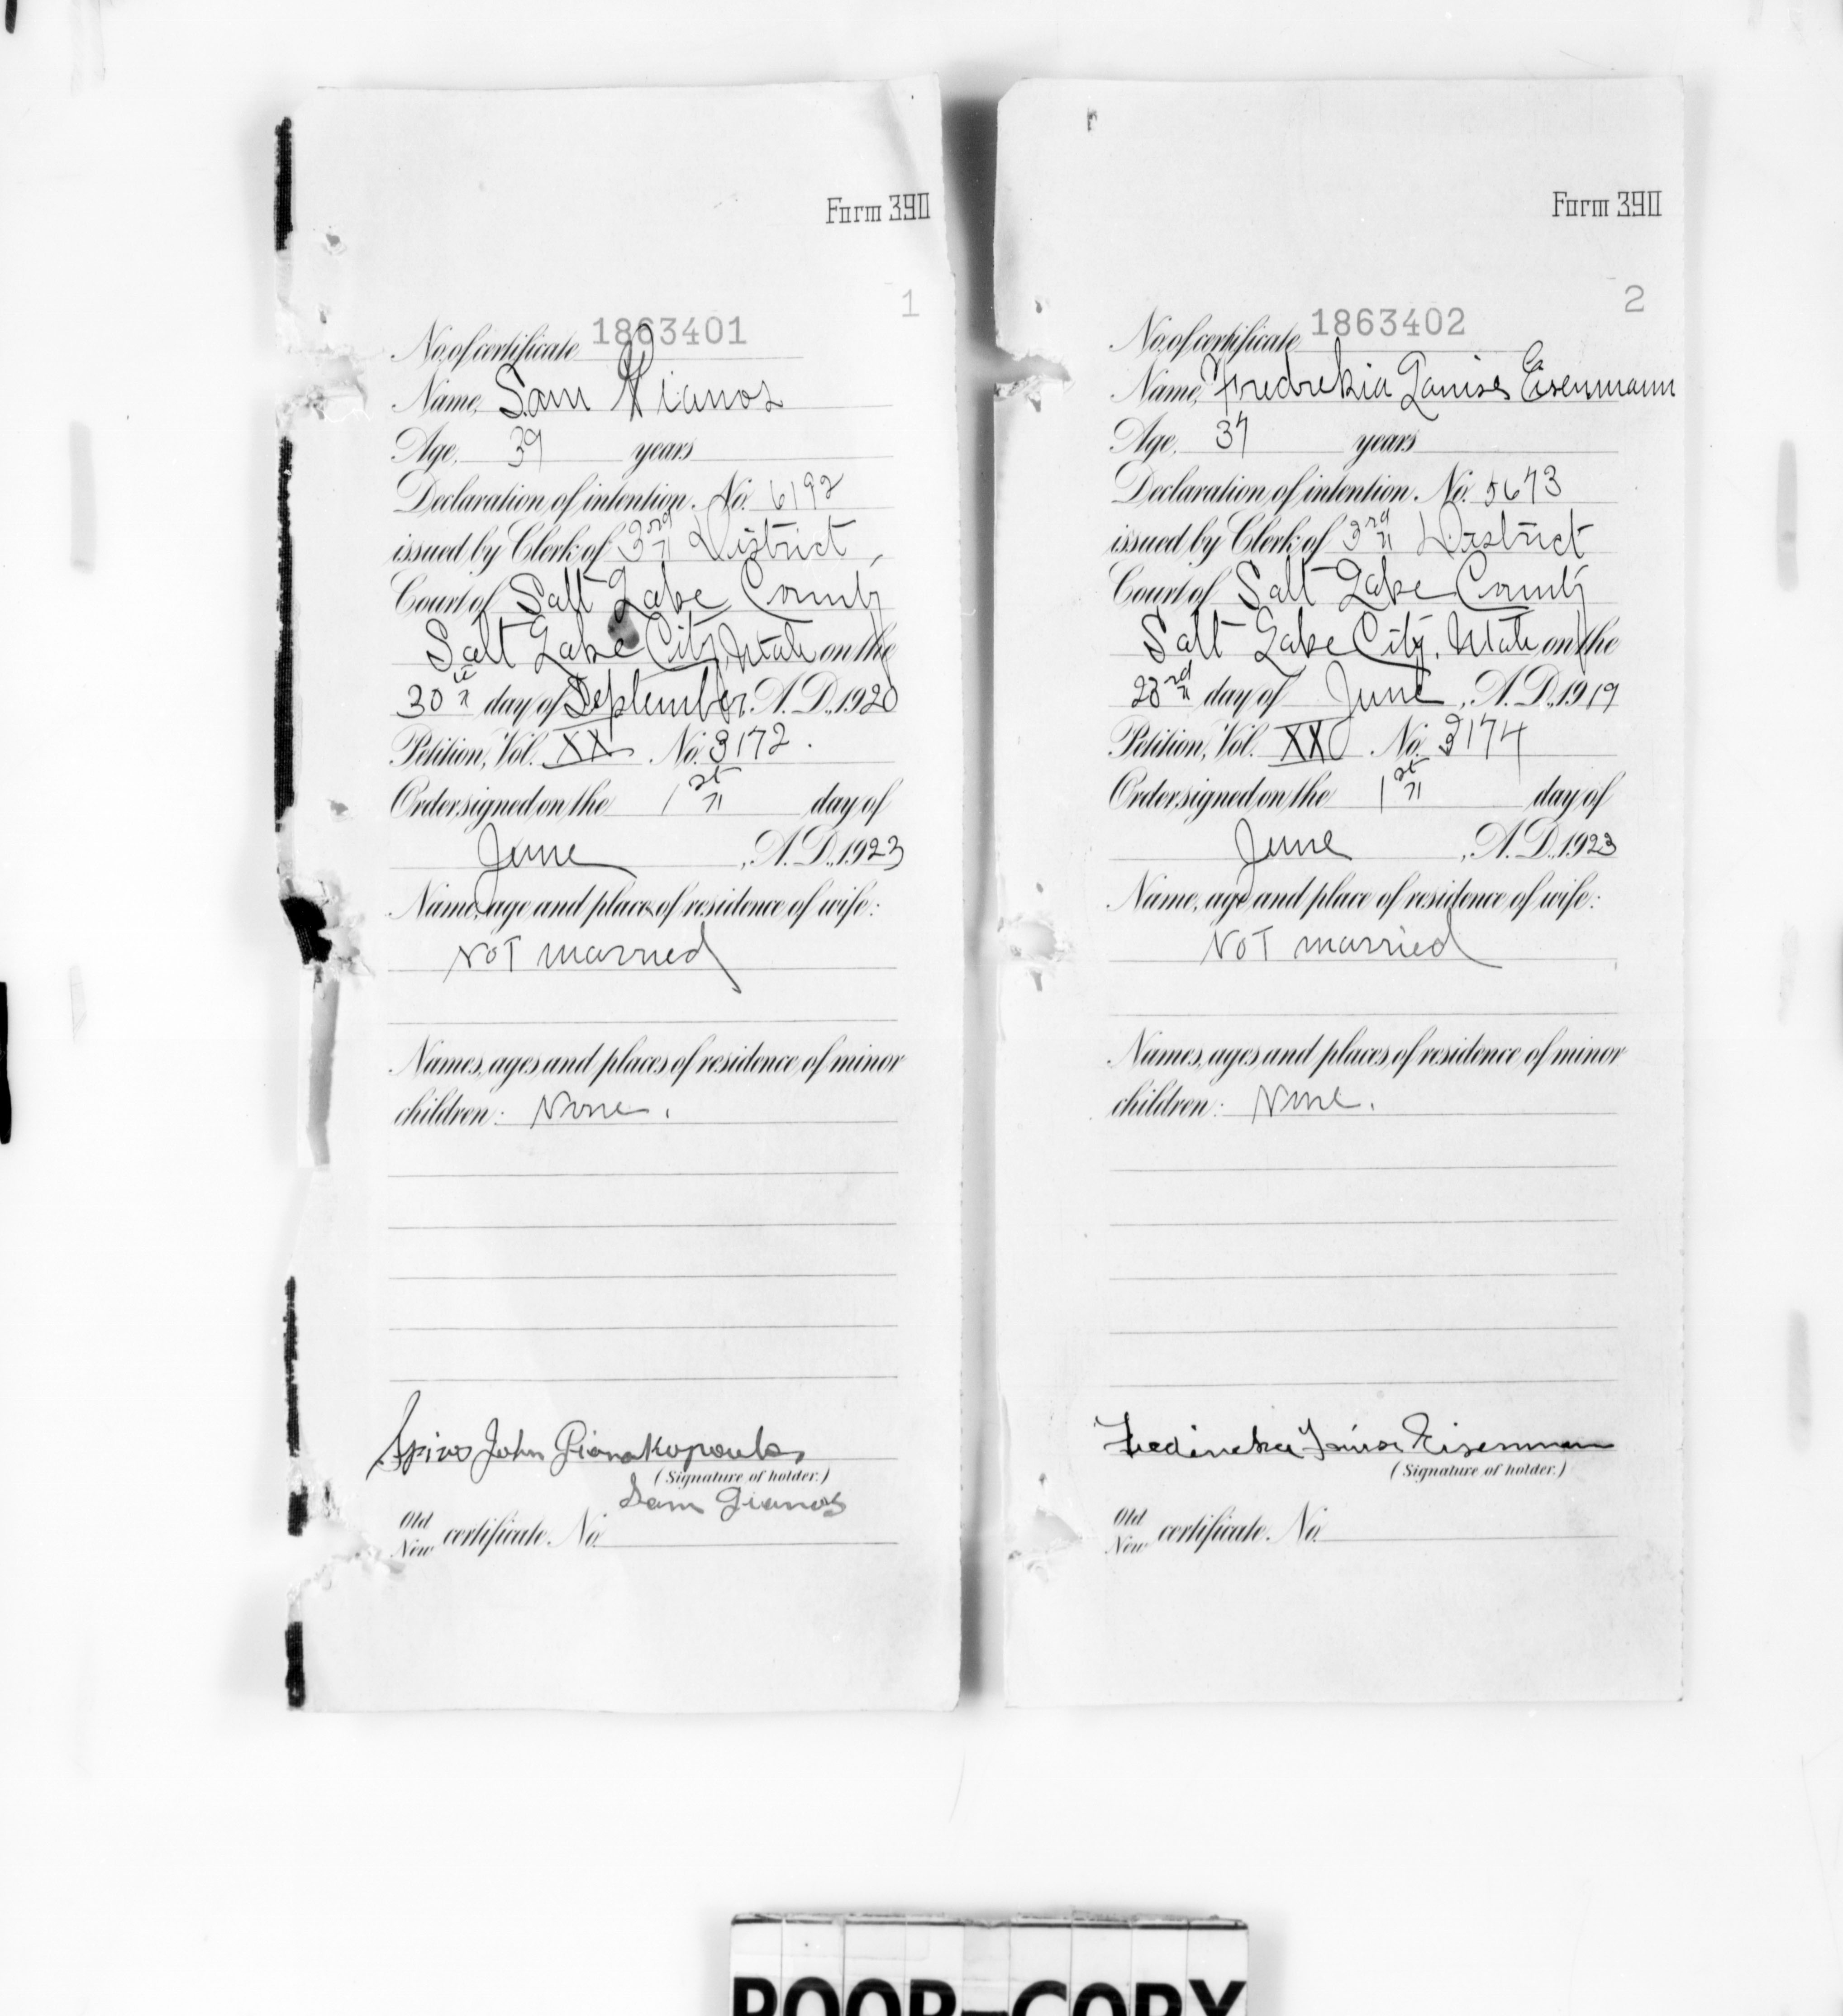 Form 390
1
No. of certificate 1863401
Name, Sam Gianos
Age, 39 years
Declaration of intention, No. 6192
issued by Clerk of 3rd District,
Court of Salt Lake County
Salt Lake City, Utah on the
30th day of September, A.D., 1920
Petition, Vol. XX No. 3172.
Order signed on the 1st day of
June, A.D., 1923
Name, age and place of residence of wife:
Not married
Names, ages and places of residence of minor
children: None.
Spiros John Gianakopoulos
(Signature of holder.)
Sam Gianos
Old
New certificate, No.
Form 390
2
No. of certificate 1863402
Name, Fredrekia Louise Eisenmann
Age, 37 years
Declaration of intention, No. 5673
issued by Clerk of 3rd District
Court of Salt Lake County
Salt Lake City, Utah on the
23rd day of June, A.D., 1919
Petition, Vol. XX No. 3174
Order signed on the 1st day of
June, A.D., 1923
Name, age and place of residence of wife:
Not married
Names, ages and places of residence of minor
children: None.
Eisenmann
(Signature of holder.)
Old
New certificate, No.
POOR-COPY